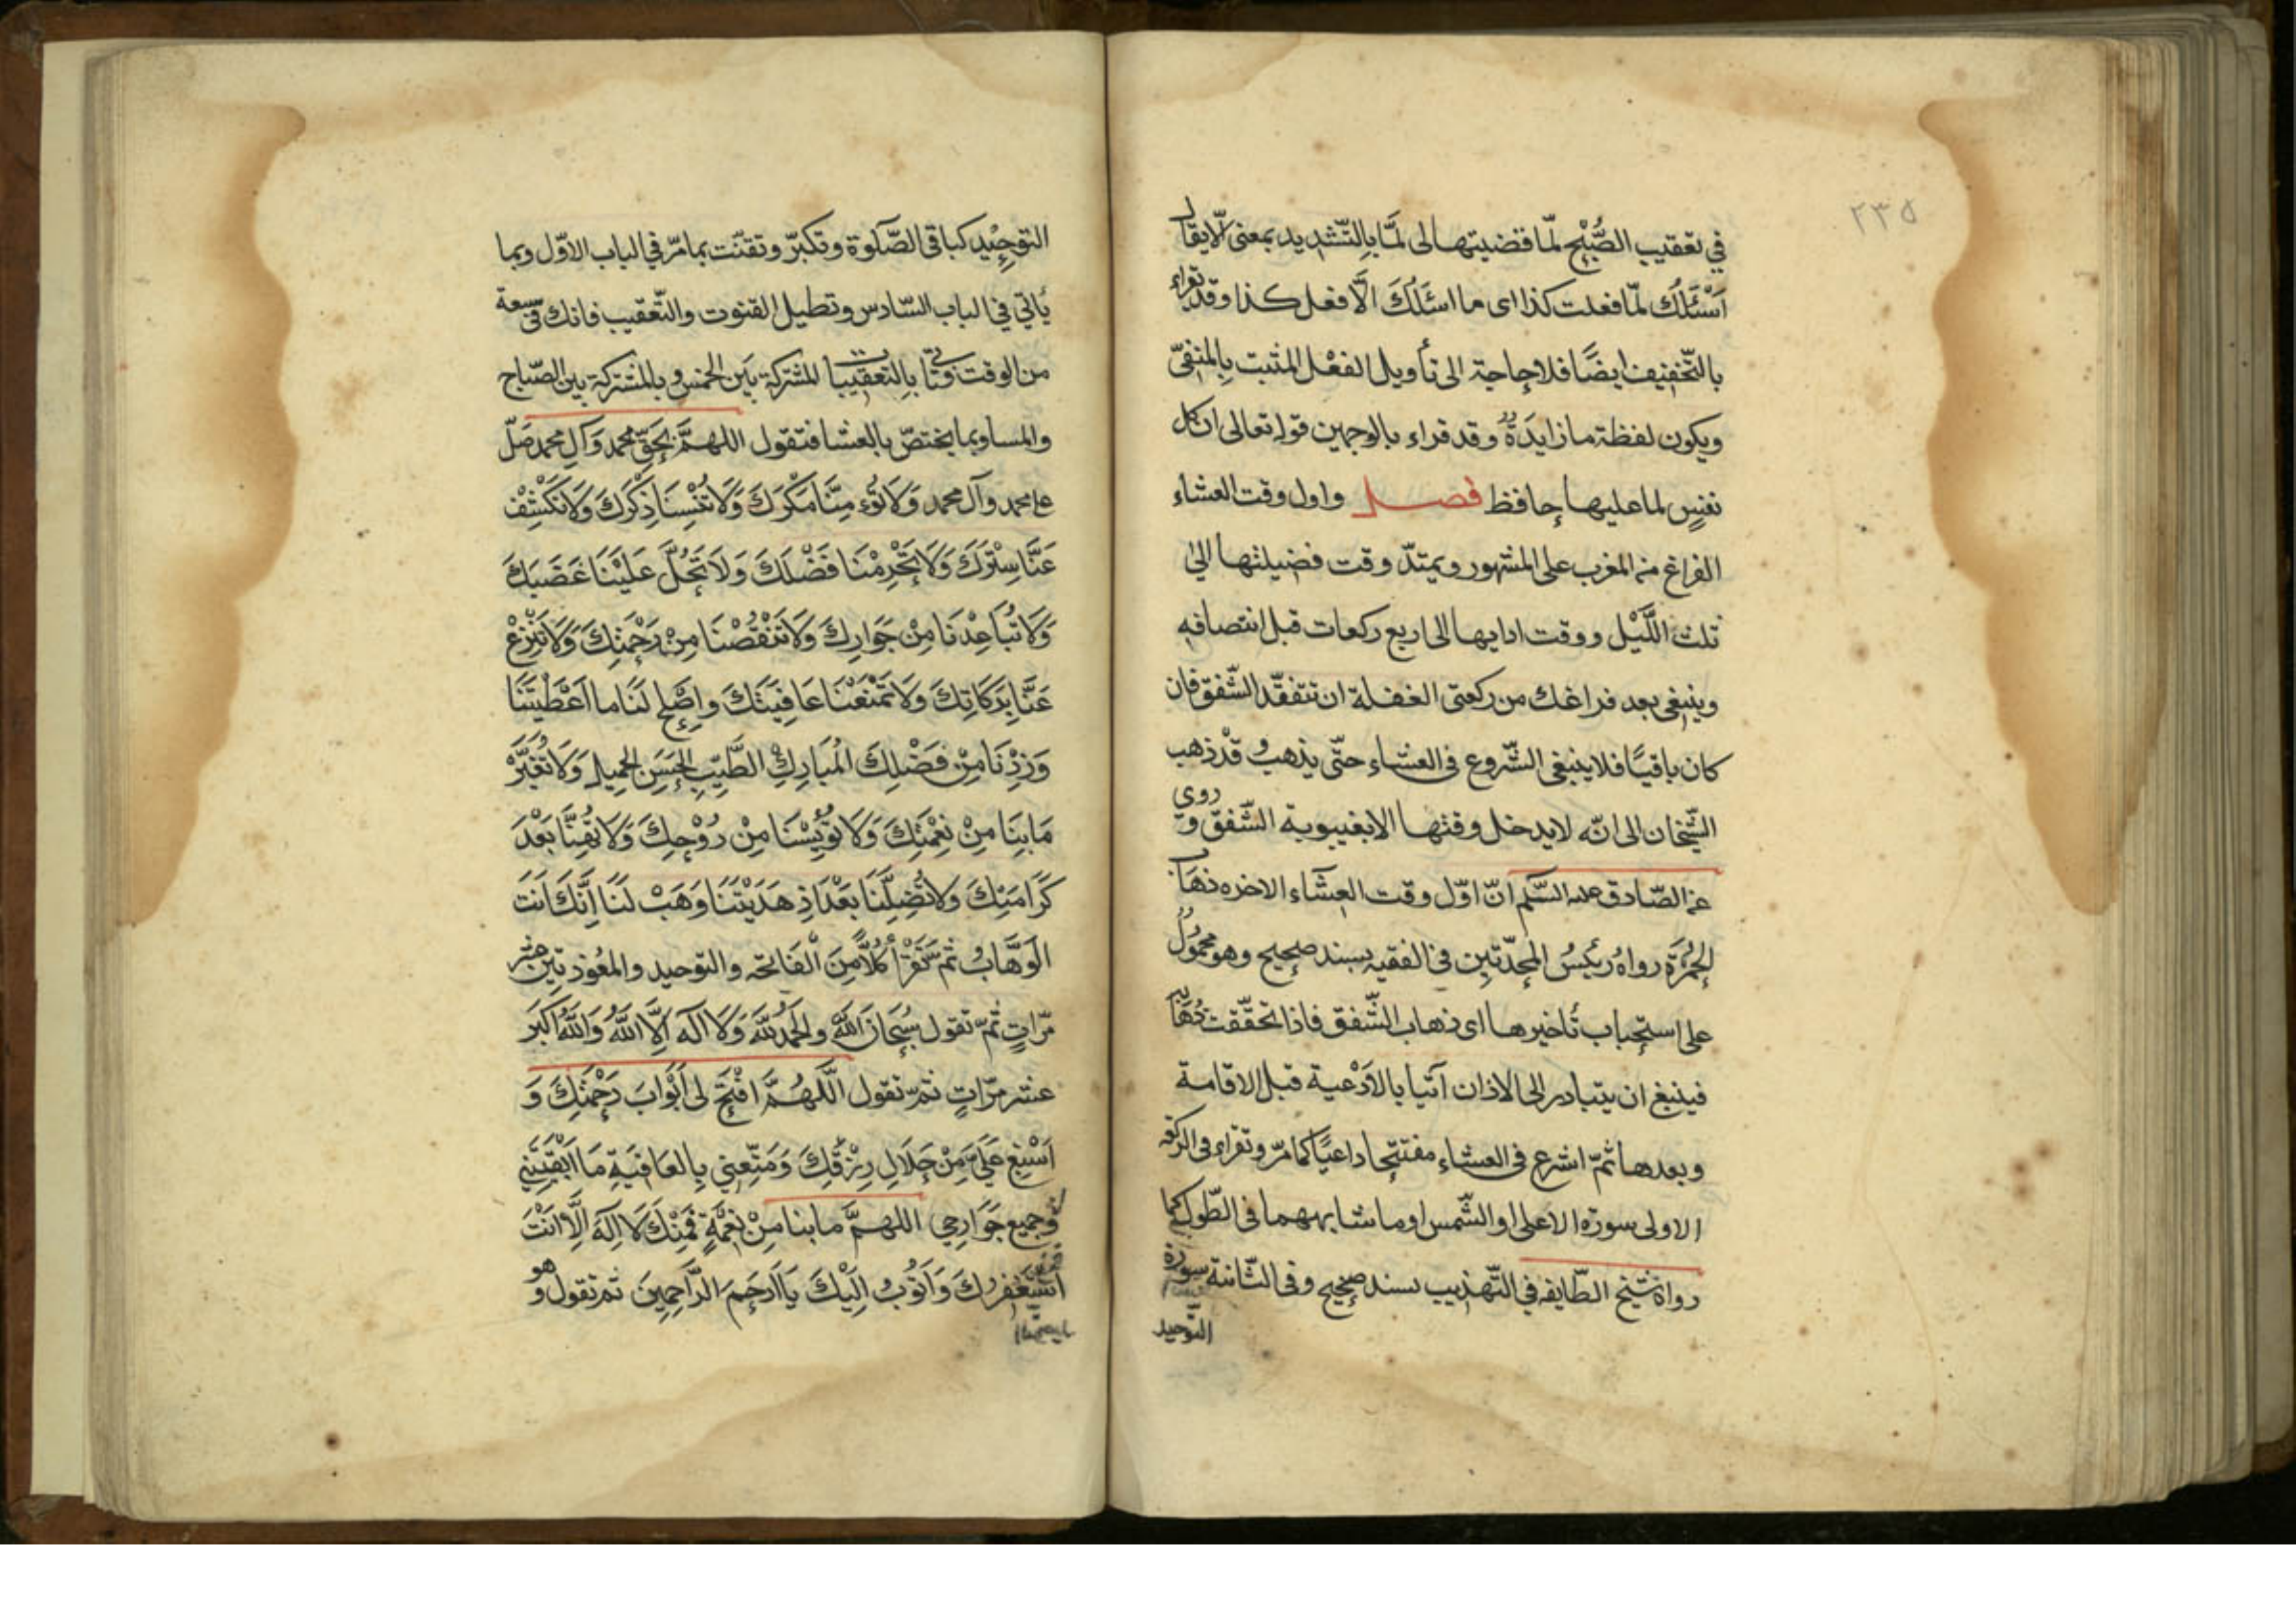 ٢٣٥
في تعقيب الصُّبْحِ لمّا قضيتها لى لمَّا بِالتّشديد بمعنى الّا يقال
اَسْئَلُكَ لمّا فعلت كذا اى ما اسئَلُكَ الّا فعل كذا وقد تقراء
بالتّخفيف ايضًا فلا حاجة الى تأويل الفعْل المثبت بِالمنفىّ
ويكون لفظة ما زايدَةً وقد قراء بالوجهين قوله تعالى ان كل
نفسٍ لما عليها حافظ فصل واول وقت العشاء
الفراغ من المغرب على المشهور ويمتدّ وقت فضيلتها الى
ثلث اللَّيْل ووقت ادايها الى اربع ركعات قبل انتصافه
وينبغى بعد فراغك من ركعتى الغفلة ان تتفقّد الشّفق فان
كان باقيًا فلا ينبغى الشّروع فى العشاء حتّى يذهب وقدْ ذهب
الشّيخان الى انّه لا يدخل وقتها الا بغيبوبة الشّفق وروى
عن الصّادق عليه السّلم انّ اوّل وقت العشآء الاخره ذهاب
الحُمْرَةِ رواهُ رئيسُ المحدّثين فى الفقيه بسند صحيح وهو محمُولٌ
على استحباب تأخيرها اى ذهاب الشّفق فاذا تحقّقت ذهابه
فينبغ ان يتبادر الى الاذان آتيا بالأدْعية قبل الاقامة
وبعدها ثمّ اشرع فى العشاء مفتتحا داعيًا كما مرّ وتقراء فى الركعة
الاولى سورة الاعلى او الشّمس او ما شابههما فى الطّول كما
رواهُ شيخ الطّايفه في التّهذيب بسند صحيح وفى الثّانية سورة
التّوحيد
التوحِيْد كباقى الصّلوة وتكبرّ وتقنت بما مرّ في الباب الاوّل وبما
يأتي في الباب السّادس وتطيل القنوت والتّعقيب فانك فى سعة
من الوقت وتأتى بِالتعقيبات المشتركة بيَن الخمس وبالمشتركة بين الصّباح
والمسا وبما يختصّ بالعشا فتقول اللهمَّ بِحَقِّ محمد وَآلِ محمد صَلّ
على محمد وآل محمد وَلَا تُؤمِنَّا مَكْرَكَ وَلَا تُنْسِنَا ذِكْرَكَ وَلَا تَكْشِفْ
عَنَّا سِتْرَكَ وَلَا تَحْرِمْنَا فَضْلَكَ وَلَا تَحُلَّ عَلَيْنَا غَضَبَكَ
وَلَا تُبَاعِدْنَا مِنْ جَوَارِكَ وَلَا تَنْقُصْنَا مِنْ رَحْمَتِكَ وَلَا تَنْزَعْ
عَنَّا بَرَكَاتِكَ وَلَا تَمْنَعْنَا عَافِيَتَكَ واِصْلِح لَنَا ما اَعْطَيْتَنَا
وَزِدْنَا مِنْ فَضْلِكَ الْمُبَارِكِ الطَّيِّبِ الحَسَنِ الجَمِيل وَلَا تُغَيِّرْ
مَا بِنَا مِنْ نِعْمَتِكَ وَلَا تُؤيِسْنَا مِنْ رُوْحِكَ وَلَا تُهِنَّا بَعْدَ
كَرَامَتِكَ وَلَا تُضِلَّنَا بَعْدَ اِذ هَدَيْتَنَا وَهَبْ لَنَا اِنَّكَ اَنْتَ
الوَهَّابُ ثمّ تَقْرَأ كُلًّا مِنَ الْفَاتحَة والتوحيد والمعُوذتين عشر
مرّاتٍ ثمّ تقول سُبْحَانَ اللَّهِ والحَمْدُ للَّهِ وَلَا الَهَ اِلَّا اللَّهُ وَاللَّهُ اَكْبَرَ
عشر مرّاتٍ ثمّ تقول اَللّهُمَّ افْتَحْ لى اَبْوَابَ رَحْمَتِكَ وَ
اَسْبِغ عَلَىَّ مِنْ حَلَالِ رِزْقِكَ وَمَتِّعنِي بِالعَافِيَةِ مَا اَبْقَيْتَنِي
وجميع جَوَارِحِي اللهمَّ ما بنا مِنْ نِعْمَةٍ فَمِنْكَ لَا اِلَهَ اِلَّا اَنْتَ
اَسْتَغْفِرُكَ وَاَتُوبُ اِلَيْكَ يَا اَرحَمَ الرَّاحِمِينَ ثمّ تقول وهو